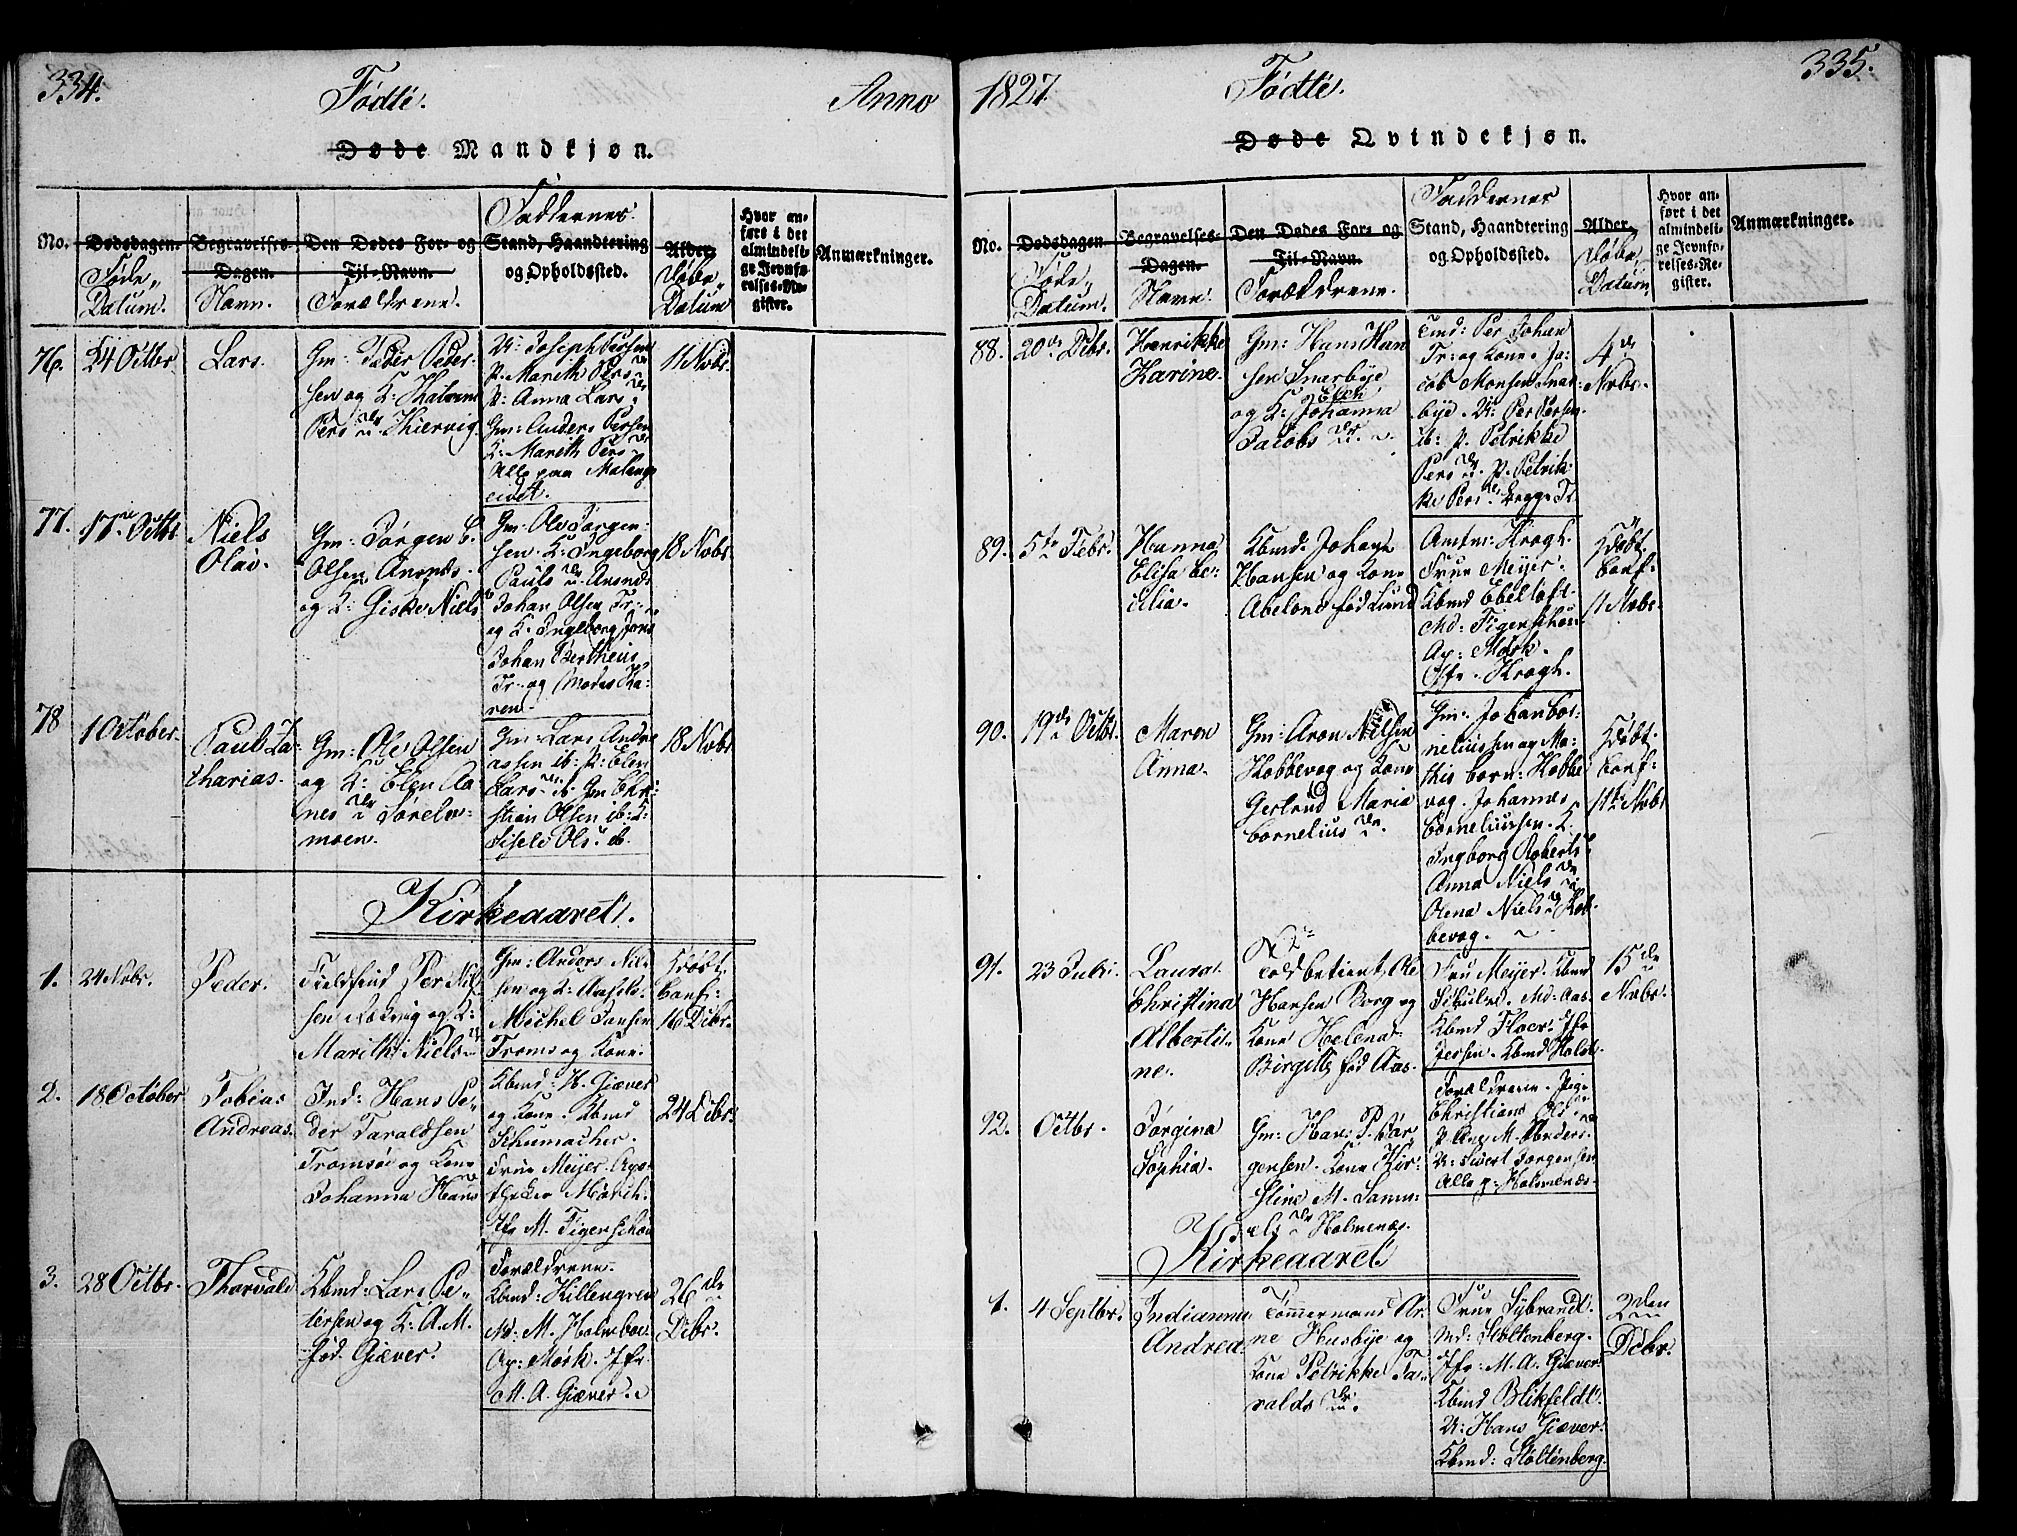 334.
Fødte.
Anno
Døde Mandkjøn.
No.
Dødsdagen.
Føde„
Datum.
Begravelses-
Dagen.
Navn.
Den Dødes For- og
Til-Navn.
Forældrene.
Faddernes
Stand, Haandtering
og Opholdssted.
Alder.
Døbe„
Datum
Hvor an-
ført i det
almindeli-
ge Jevnfø-
relses-Re-
gister.
Anmærkninger.
76.
24 Octbr
Lars.
Gm: Peder Peder-
sen og K:
Pers Kiervig.
P. Mareth Pers
P: Anna Lars
Gm: Anders Persen
K: Mareth Pers
Alle paa Malange
eidet.
11 Novbr.
77.
17de Octbr
Niels
Olai.
Gm: Jørgen C.
Olsen Ansnæs.
og K: Giske Niels
Gm: Ole Jørgen-
sen. K: Ingeborg
Pauls Ansnæs
Johan Olsen Tr.
og K. Ingeborg Jens
Johan Bertheus
Tr. og Moder Ka-
ren.
18 Novbr.
78
1 October.
Paul Za-
charias.
Gm: Ole Olsen
og K: Elen Aa-
nes Sørel-
moen.
Gm: Lars Andre
assen ib: P: Elen
Lars ib. Gm Chri-
stian Olsen ib: K:
Sisele Ols ib.
18 Novbr.
Kirkeaaret.
1.
24 Nobr.
Peder.
Fieldfind Per Nil-
sen og K:
Marith Niels
Gm: Anders Nil-
sen og K:
Michel Jansen
Tromsø og Kone.
Hdøbt.
Conf:
16 Debr.
2.
18 October
Tobias
Andreas.
Ind: Hans Pe-
der Taraldsen
Tromsøe og Kone
Johanna Hans
Kbmd: H. Giæver
og Kone. Kbmd
Schumacher.
Frue Meyer. Apo-
theker Mørch.
Jfr M. Figenschou
24 Debr.
3.
28 Octbr.
Thorvald
Kbmd: Lars Pe-
tersen og K: A. M.
fød Giæver.
Forældrene.
Kbmd: Killengren
Md: M. Holmboe.
Ap: Mørk. Jfr.
M. A. Giæver.
26de
Debr.
1827.
Fødte.
335.
Døde Qvindekjøn.
No.
Dødsdagen
Føde„
Datum.
Begravelses-
Dagen.
Navn.
Den Dødes For- og
Til-Navn.
Forældrene.
Faddernes
Stand, Haandtering
og Opholdssted.
Alder.
Døbe„
Datum
Hvor an-
ført i det
almindeli-
ge Jevnfø-
relses-Re-
gister.
Anmærkninger.
88.
20de Debr.
Henrikke
Karine.
Gm: Hans Han
sen Snarbye
og K: Johanna
Jacobs
Kmd: Per Johan
Tr: og Kone. Ja-
cob Monsen Snar-
bye. U: Per Persen
ib: P. Petrikke
Pers P. Petrik-
ke Pers Begge Tr.
4de
Novbr.
89.
5te Febr.
Hanna
Elisa Ce-
cilia.
Kbmd: Johan
Hansen og Kone
Abelone fød Lund
Amtm: Krogh.
Frue Meyer.
Kbmd Ebeltoft.
Md: Figenschou
Ap: Mørk.
Jfr. Krogh.
Hdøbt.
Conf:
11 Novbr.
90.
19de Octbr.
Maren
Anna.
Gm: Aron Nilsen
Kobbevog og Kone
Gertrud Maria
Cornelius
Gm: Johan Cor-
neliussen og Ma-
this Corn: Kobbe
vog. Johannes
Corneliussen. K.
Ingborg Roberts
Anna Niels
Olena Niels Kob-
bevog.
Hdøbt.
Conf:
11te Novbr
91.
23 Juli.
Laura
Christina
Alberti-
ne.
Toldbetient, Ole
Hansen Borg og
Kone Helena
Birgitte fød Aas.
Fru Meyer. Kbmd
Schultz. Md: Aas.
Kbmd Floer. Jfr
Jessen. Kbmd Holst.
15de
Novbr.
92.
Octbr.
Jørgina
Sophia.
Gm: Han: P. Jør-
gensen. Kone Kir-
stine M. Samu-
els Holmenæs.
Forældrene. Pige
Christiane Ols
P. Ane M. Anders
U: Sivert Jørgensen
Alle p. Holmenæs.
Kirkeaaret
1.
4 Septbr.
Indianna
Andrea
Tømmermand Ar
ne Husbye og
Kone Petrikke Ta-
ralds
Frue Sybrandt.
Md: Stoltenberg.
Jfr: M. A. Giæver.
Kbmd Blikfeldt.
U: Hans Giæver.
Kbmd: Stoltenberg.
2den
Debr.